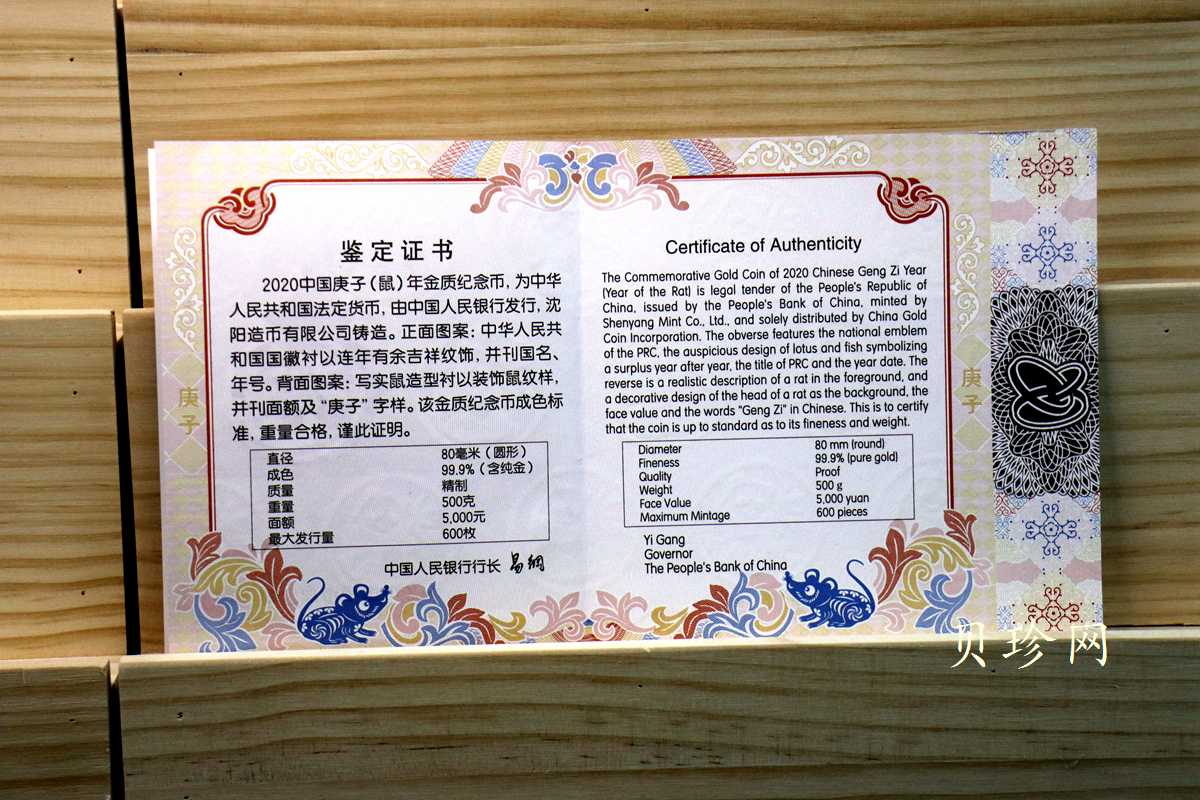 鉴定证书
2020中国庚子（鼠）年金质纪念币，为中华
人民共和国法定货币，由中国人民银行发行，沈
阳造币有限公司铸造。正面图案：中华人民共
和国国徽衬以连年有余吉祥纹饰，并刊国名、
年号。背面图案：写实鼠造型衬以装饰鼠纹样，
并刊面额及“庚子”字样。该金质纪念币成色标
准，重量合格，谨此证明。
直径 80毫米（圆形）
成色 99.9%（含纯金）
质量 精制
重量 500克
面额 5,000元
最大发行量 600枚
中国人民银行行长 易纲
庚子
Certificate of Authenticity
The Commemorative Gold Coin of 2020 Chinese Geng Zi Year
(Year of the Rat) is legal tender of the People's Republic of
China, issued by the People's Bank of China, minted by
Shenyang Mint Co., Ltd., and solely distributed by China Gold
Coin Incorporation. The obverse features the national emblem
of the PRC, the auspicious design of lotus and fish symbolizing
a surplus year after year, the title of PRC and the year date. The
reverse is a realistic description of a rat in the foreground, and
a decorative design of the head of a rat as the background, the
face value and the words "Geng Zi" in Chinese. This is to certify
that the coin is up to standard as to its fineness and weight.
Diameter 80 mm (round)
Fineness 99.9% (pure gold)
Quality Proof
Weight 500 g
Face Value 5,000 yuan
Maximum Mintage 600 pieces
Yi Gang
Governor
The People's Bank of China
庚子
贝珍网